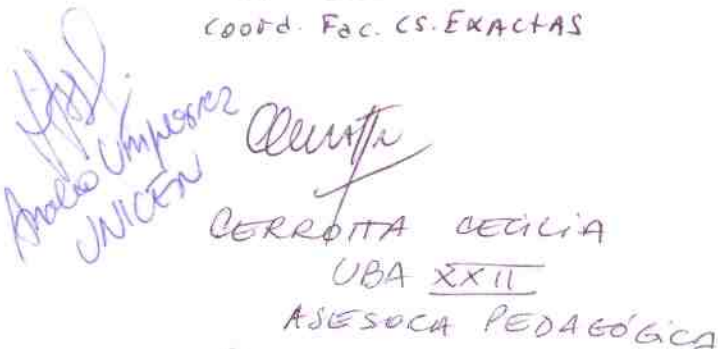 Coord. Fac. Cs. EXACtAS
Analía Umpierrez
UNICEN
CERROTTA CECILIA
UBA XXII
ASESORA PEDAGÓGICA